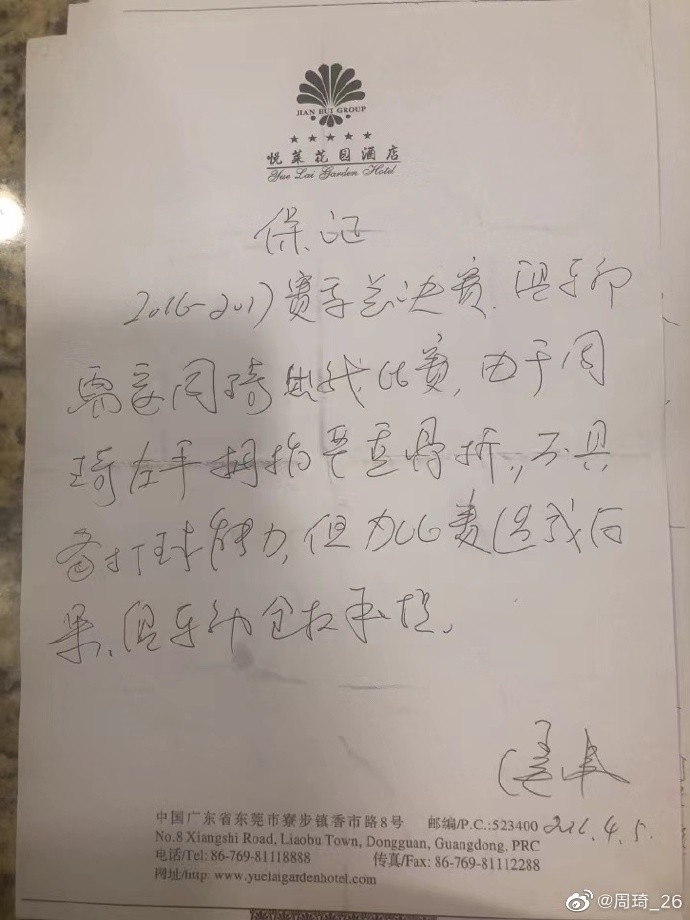 JIAN HUI GROUP
★★★★★
悦莱花园酒店
Yue Lai Garden Hotel
保证
2016-2017赛季总决�、俱乐部
需要周琦出战比赛,由于周
琦左手拇指严重骨折,不具
备打球能力,但为比赛造成后
果、俱乐部全权承担。
2016.4.5.
中国广东省东莞市寮步镇香市路8号 邮编/P.C.:523400
No.8 Xiangshi Road, Liaobu Town, Dongguan, Guangdong, PRC
电话/Tel: 86-769-81118888 传真/Fax: 86-769-81112288
网址/http: www.yuelaigardenhotel.com
@周琦_26